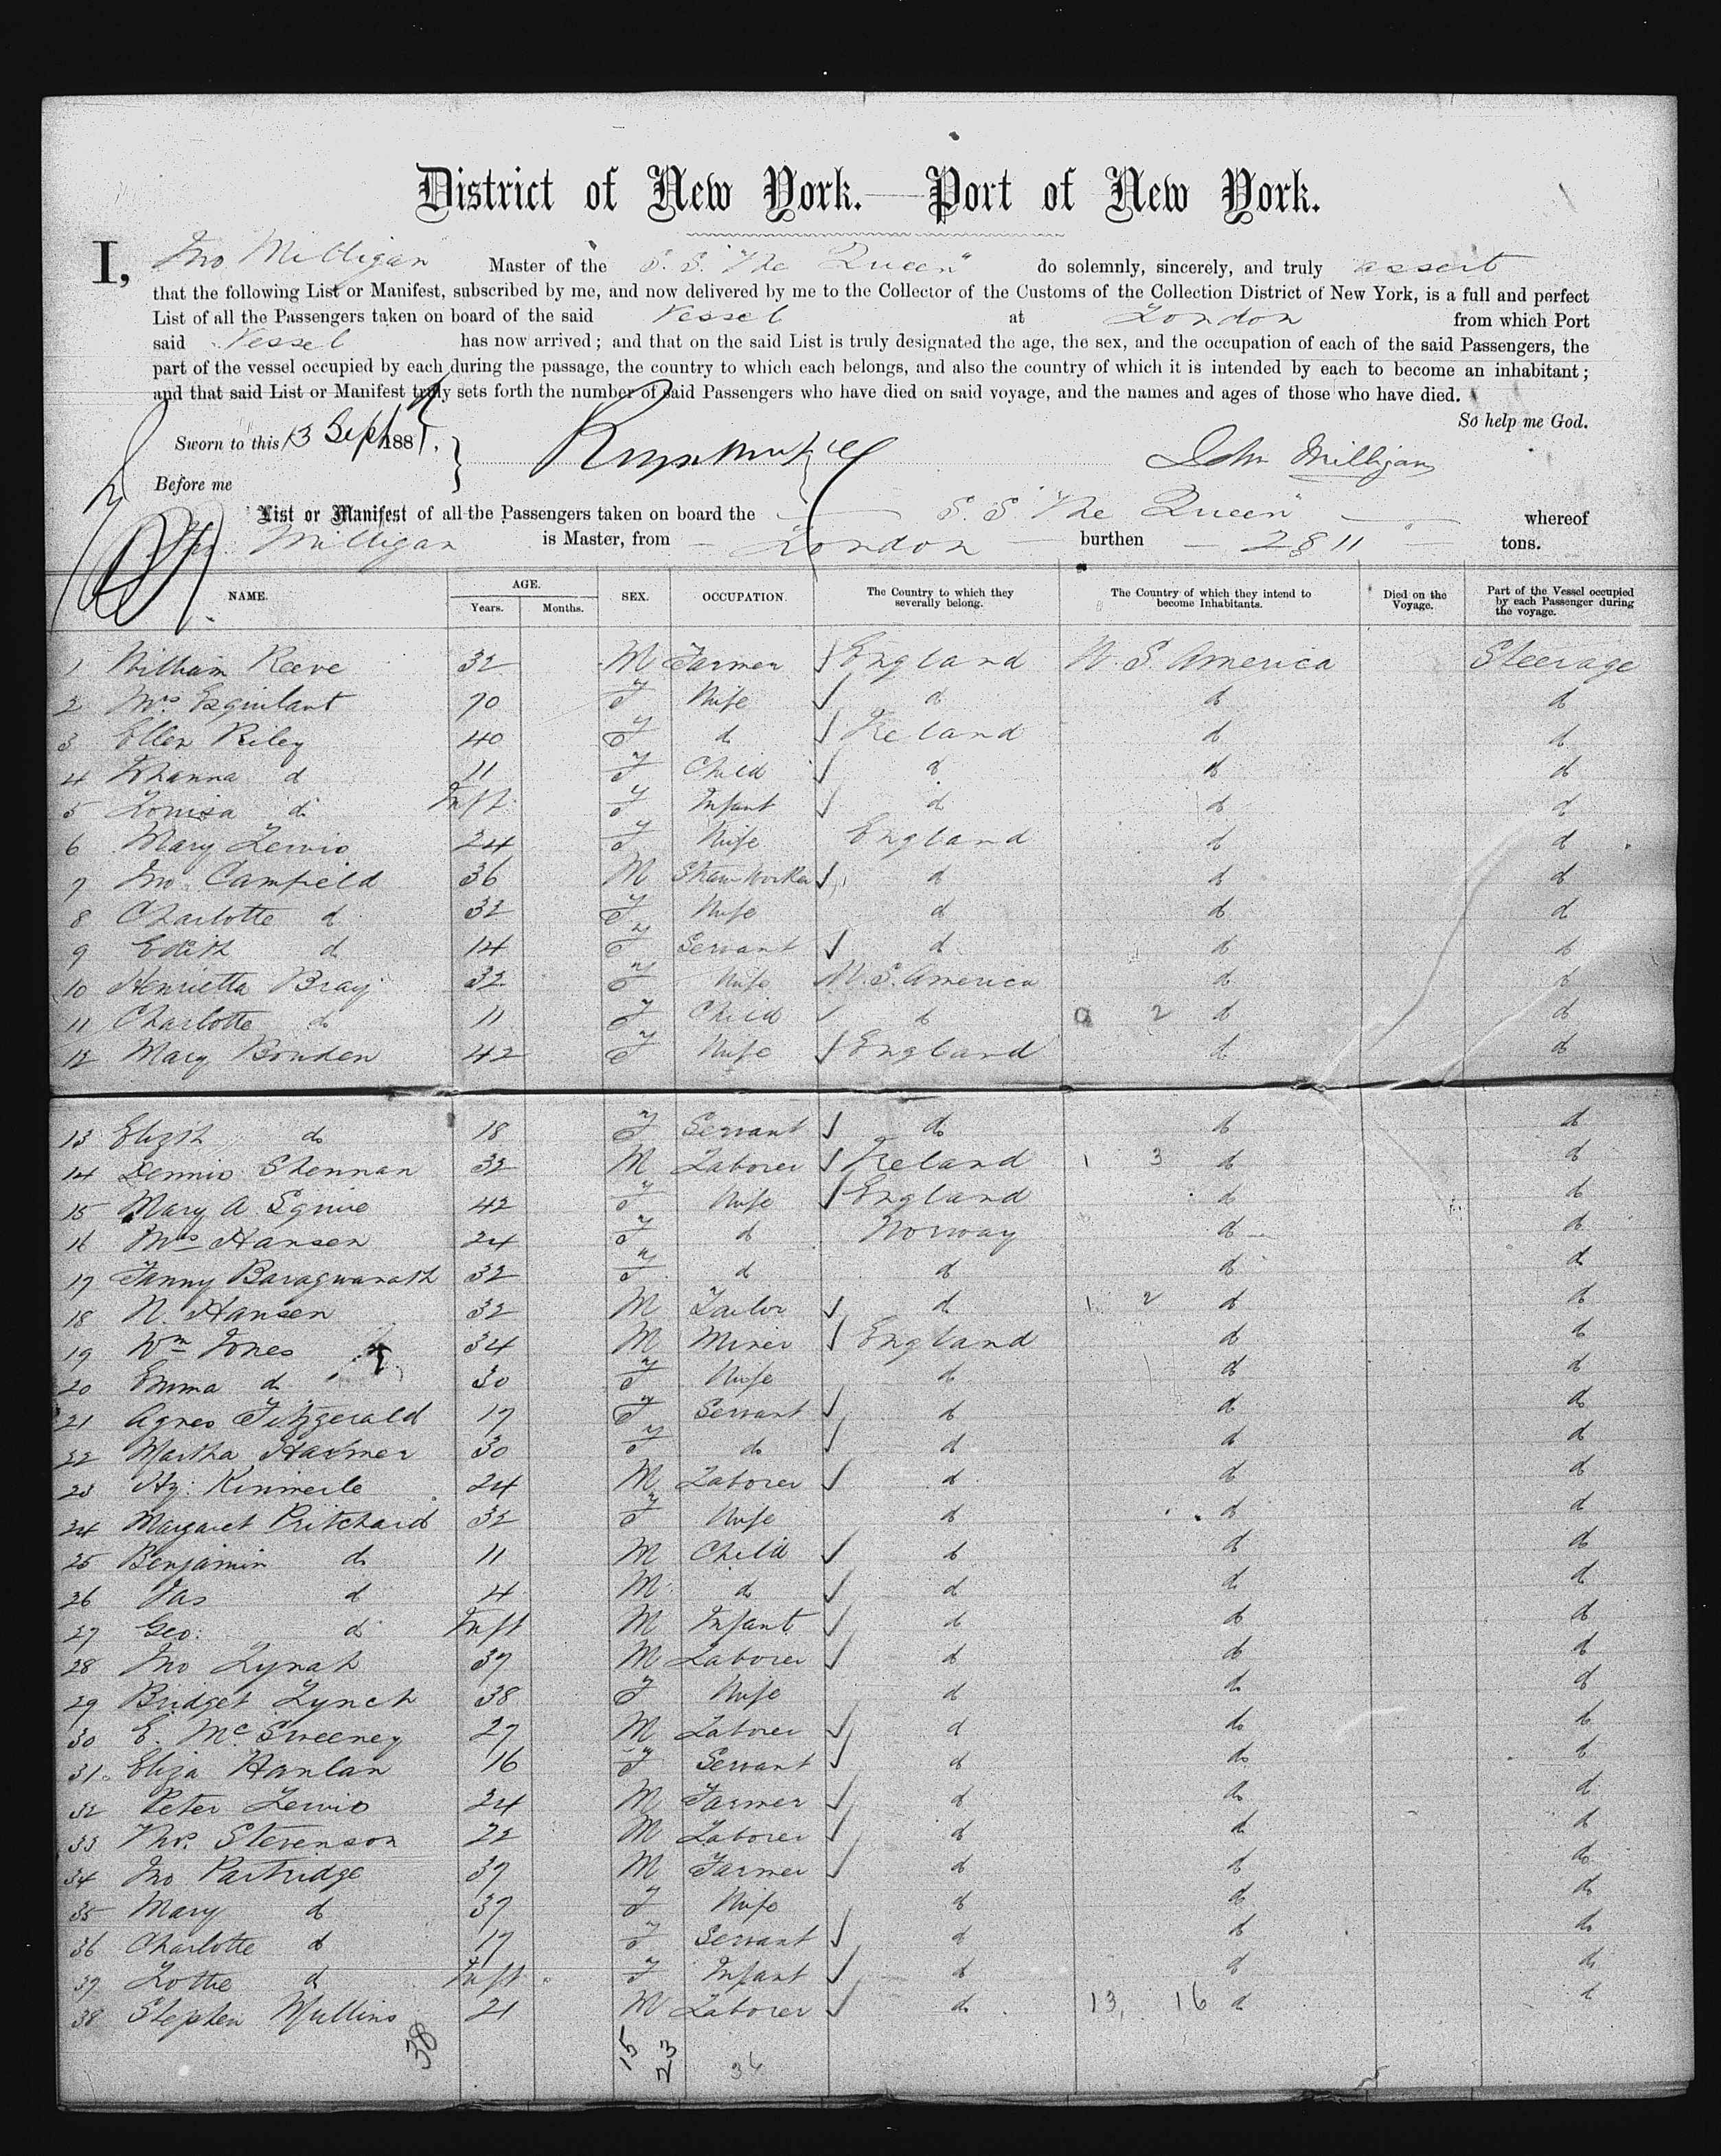 District of New York.—Port of New York.
I, Jno Milligan Master of the S. S. "The Queen" do solemnly, sincerely, and truly assert
that the following List or Manifest, subscribed by me, and now delivered by me to the Collector of the Customs of the Collection District of New York, is a full and perfect
List of all the Passengers taken on board of the said Vessel at London from which Port
said Vessel has now arrived; and that on the said List is truly designated the age, the sex, and the occupation of each of the said Passengers, the
part of the vessel occupied by each during the passage, the country to which each belongs, and also the country of which it is intended by each to become an inhabitant;
and that said List or Manifest truly sets forth the number of said Passengers who have died on said voyage, and the names and ages of those who have died.
So help me God.
Sworn to this 13 Sept 1881. John Milligan
Before me
List or Manifest of all the Passengers taken on board the S. S "The Queen" whereof
Jno. Milligan is Master, from London burthen 2811 tons.
NAME. AGE. Years. Months. SEX. OCCUPATION. The Country to which they severally belong. The Country of which they intend to become Inhabitants. Died on the Voyage. Part of the Vessel occupied by each Passenger during the voyage.
1 William Reeve 32 M Farmer England U. S. America Steerage
2 Mrs Esquilant 70 F Wife do do do
3 Ellen Riley 40 F do Ireland do do
4 Johanna do 11 F Child do do do
5 Louisa do Inft F Infant do do do
6 Mary Lewis 24 F Wife England do do
7 Jno. Camfield 36 M Straw Worker do do do
8 Charlotte do 32 F Wife do do do
9 Edith do 14 F Servant do do do
10 Henrietta Bray 32 F Wife U. S. America do do
11 Charlotte do 11 F Child do 0 2 do do
12 Mary Bowden 42 F Wife England do do
13 Elizth do 18 F Servant do do do
14 Dennis Shennan 32 M Laborer Ireland 1 3 do do
15 Mary A Squire 42 F Wife England do do
16 Mrs Hansen 24 F do Norway do do
17 Fanny Baragwanath 32 F do do do do
18 N. Hansen 32 M Tailor do 1 2 do do
19 Wm Jones 34 M Miner England do do
20 Emma do 30 F Wife do do do
21 Agnes Fitzgerald 17 F Servant do do do
22 Martha Harmer 30 F do do do do
23 Hy. Kimmerle 24 M Laborer do do do
24 Margaret Pritchard 32 F Wife do do do
25 Benjamin do 11 M Child do do do
26 Jas do 4 M do do do do
27 Geo. do Inft M Infant do do do
28 Jno Lynch 37 M Laborer do do do
29 Bridget Lynch 38 F Wife do do do
30 E. McSweeney 27 M Laborer do do do
31 Eliza Hanlan 16 F Servant do do do
32 Peter Lewis 24 M Farmer do do do
33 Thos. Stevenson 22 M Laborer do do do
34 Jno Partridge 37 M Farmer do do do
35 Mary do 37 F Wife do do do
36 Charlotte do 17 F Servant do do do
37 Lottie do Inft F Infant do do do
38 Stephen Mullins 21 M Laborer do 13, 16 do do
38 15 23 36